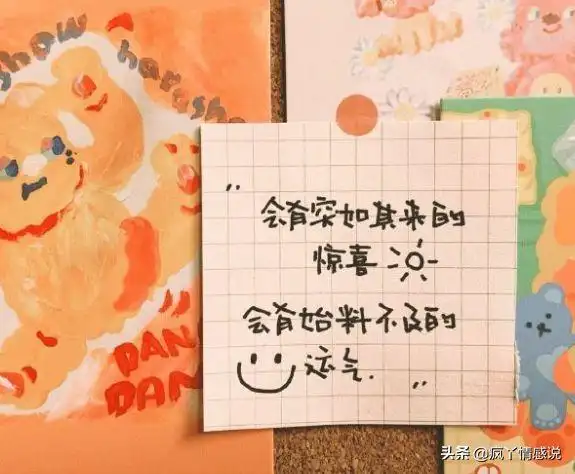 show
"会有突如其来的
惊喜
会有始料不及的
运气."
DAN
DAN
头条 @疯丫情感说